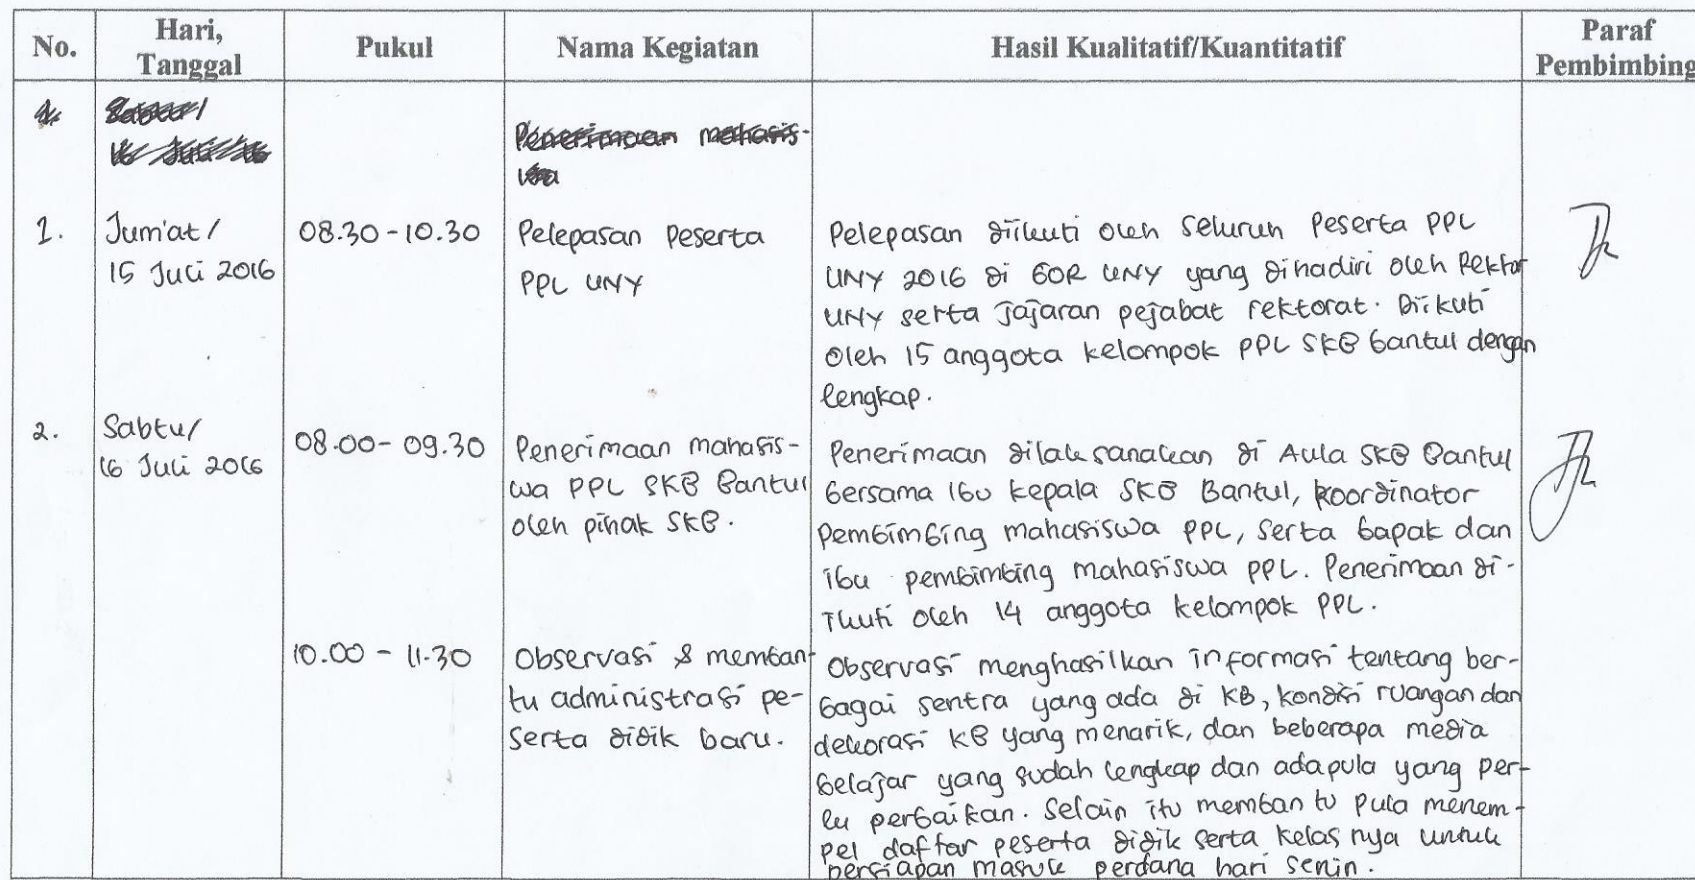 No.
Hari,
Tanggal
Pukul
Nama Kegiatan
Hasil Kualitatif/Kuantitatif
Paraf
Pembimbing
Penerimaan mahasis-
wa
1.
Jum'at /
15 Juli 2016
08.30 - 10.30
Pelepasan Peserta
PPL UNY
Pelepasan diikuti oleh seluruh Peserta PPL
UNY 2016 di GOR UNY yang dihadiri oleh Rektor
UNY serta jajaran pejabat rektorat. Diikuti
oleh 15 anggota kelompok PPL SKB Bantul dengan
lengkap.
2.
Sabtu/
16 Juli 2016
08.00 - 09.30
Penerimaan mahasis-
wa PPL SKB Bantul
oleh pihak SKB.
Penerimaan dilaksanakan di Aula SKB Bantul
bersama Ibu kepala SKB Bantul, koordinator
pembimbing mahasiswa PPL, serta bapak dan
ibu pembimbing mahasiswa PPL. Penerimaan di-
ikuti oleh 14 anggota kelompok PPL.
10.00 - 11.30
Observasi & memban-
tu administrasi pe-
serta didik baru.
Observasi menghasilkan informasi tentang ber-
bagai sentra yang ada di KB, kondisi ruangan dan
dekorasi KB yang menarik, dan beberapa media
belajar yang sudah lengkap dan adapula yang per-
lu perbaikan. Selain itu membantu pula menem-
pel daftar peserta didik serta kelas nya untuk
persiapan masuk perdana hari senin.